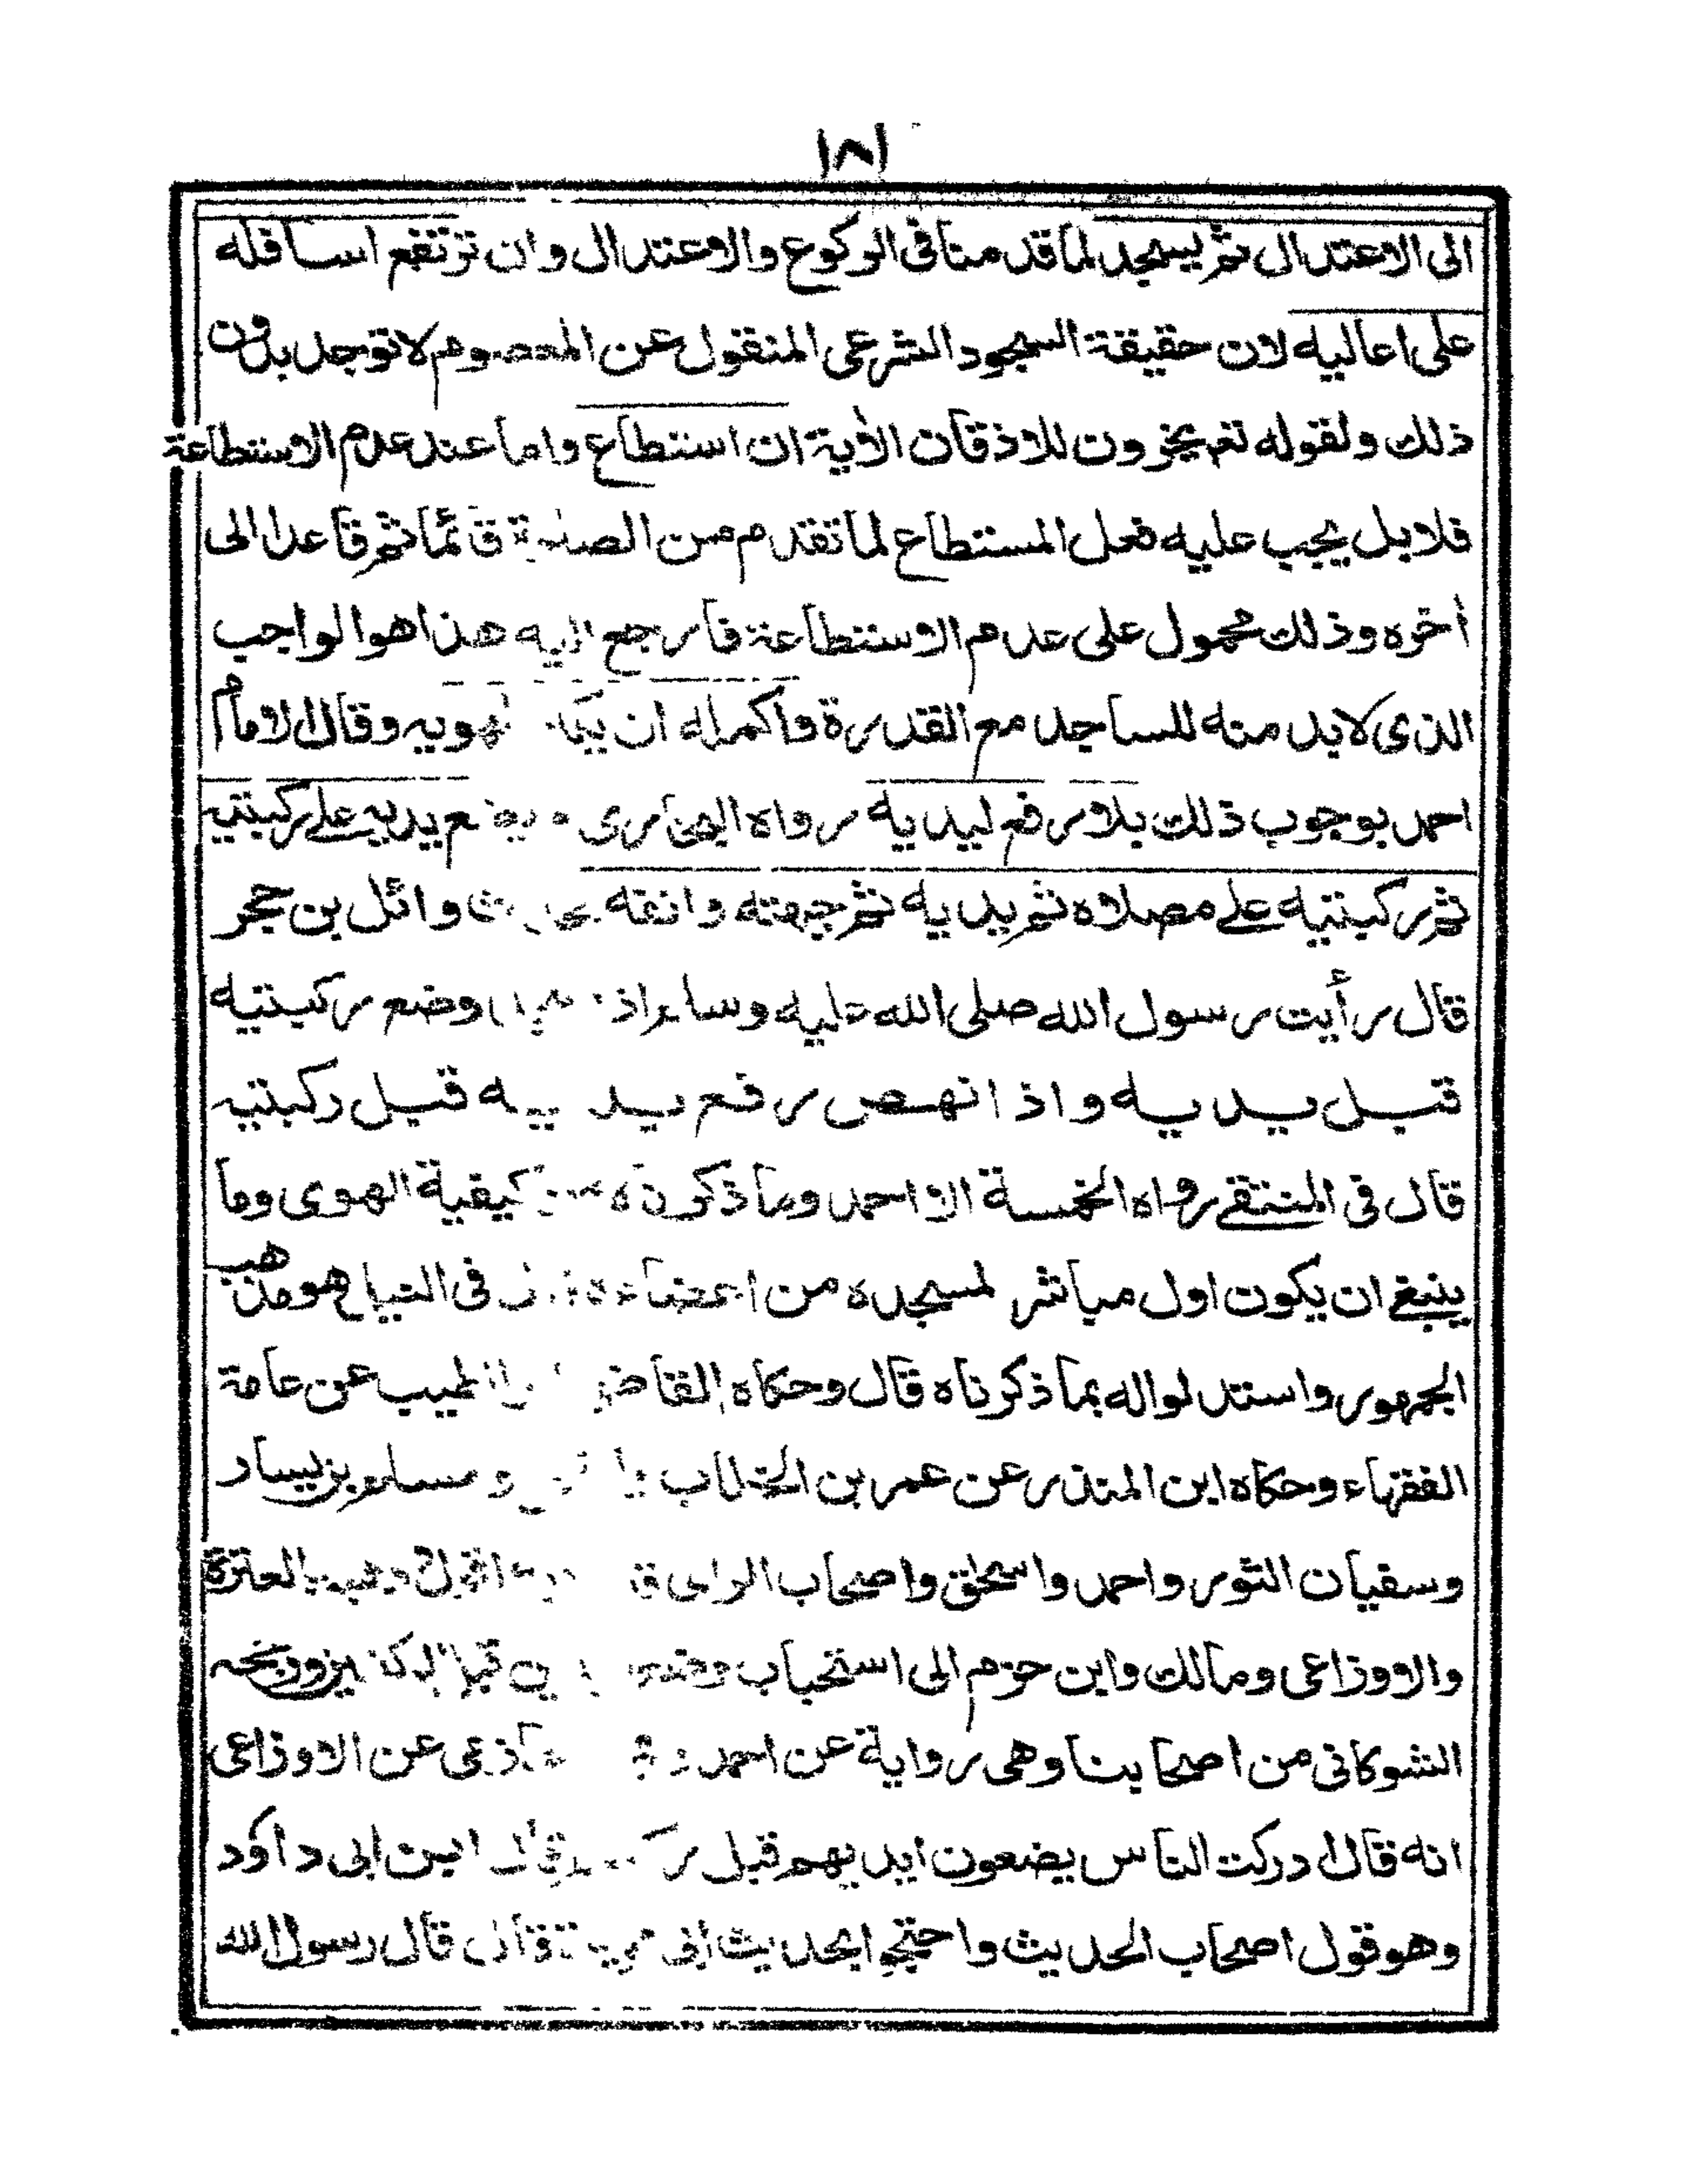 ١٨١
الى الاعتدال ثم يسجد لما قد منا فى الركوع والاعتدال وان ترتفع اسافله
على اعاليه لان حقيقة السجود الشرعى المنقول عن المعصوم لا توجد بدون
ذلك ولقوله تعم يخرون للاذقان الأية ان استطاع واما عند عدم الاستطاعة
فلا بل يجب عليه فعل المستطاع لما تقدم من الصلوة قائما ثم قاعدا الى
أخره وذلك محمول على عدم الاستطاعة فارجع اليه هذا هو الواجب
الذى لا بد منه للساجد مع القدرة واكمله ان يكبر لهويه وقال الامام
احمد بوجوب ذلك بلا رفع ليديه رواه البخارى و يضع يديه على ركبتيه
ثم ركبتيه على مصلاه ثم يديه ثم جبهته وانفه بحديث وائل بن حجر
قال رأيت رسول الله صلى الله عليه وسلم اذا سجد وضع ركبتيه
قبل يديه واذا نهض رفع يديه قبل ركبتيه
قال فى المنتقى رواه الخمسة الا احمد وما ذكرناه من كيفية الهوى وما
ينبغى ان يكون اول مباشر لمسجده من اعضاءه فى التياح هو مذهب
الجمهور واستدلوا له بما ذكرناه قال وحكاه القاضى ابو الطيب عن عامة
الفقهاء وحكاه ابن المنذر عن عمر بن الخطاب و مسلم بن يسار
وسفيان الثورى واحمد واسحق واصحاب الراى قال اقول العترة
والاوزاعى ومالك وابن حزم الى استحباب وضع اليدين قبل الركبتين ورجحه
الشوكانى من اصحابنا وهى رواية عن احمد و عن الاوزاعى
انه قال ادركت الناس يضعون ايديهم قبل ركبهم قال ابن ابى داؤد
وهو قول اصحاب الحديث واحتجوا بحديث ابى هريرة قال قال رسول الله